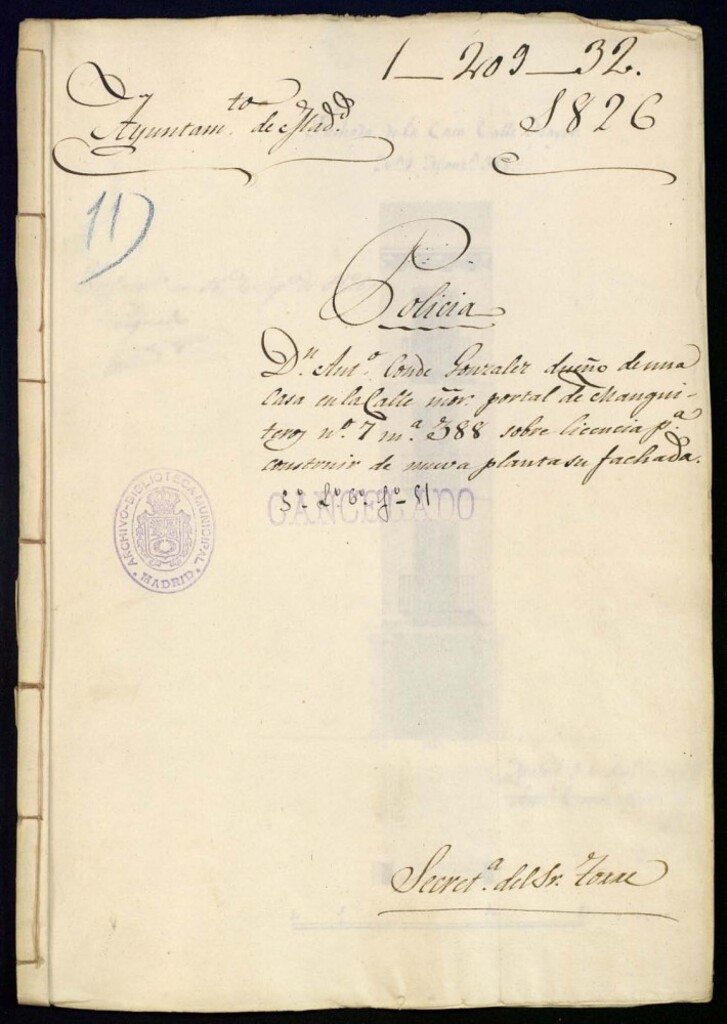 1—209—32.
Ayuntam.to de Mad.d
1826
11)
Policia
D.n Ant.o Conde Gonzalez dueño de una
casa en la Calle mor. portal de Mangui-
teros n.o 7 m.a 388 sobre licencia p.a
construir de nueva planta su fachada.
CANCELADO
ARCHIVO-BIBLIOTECA MUNICIPAL
MADRID
Secret.a del Sr. Torre